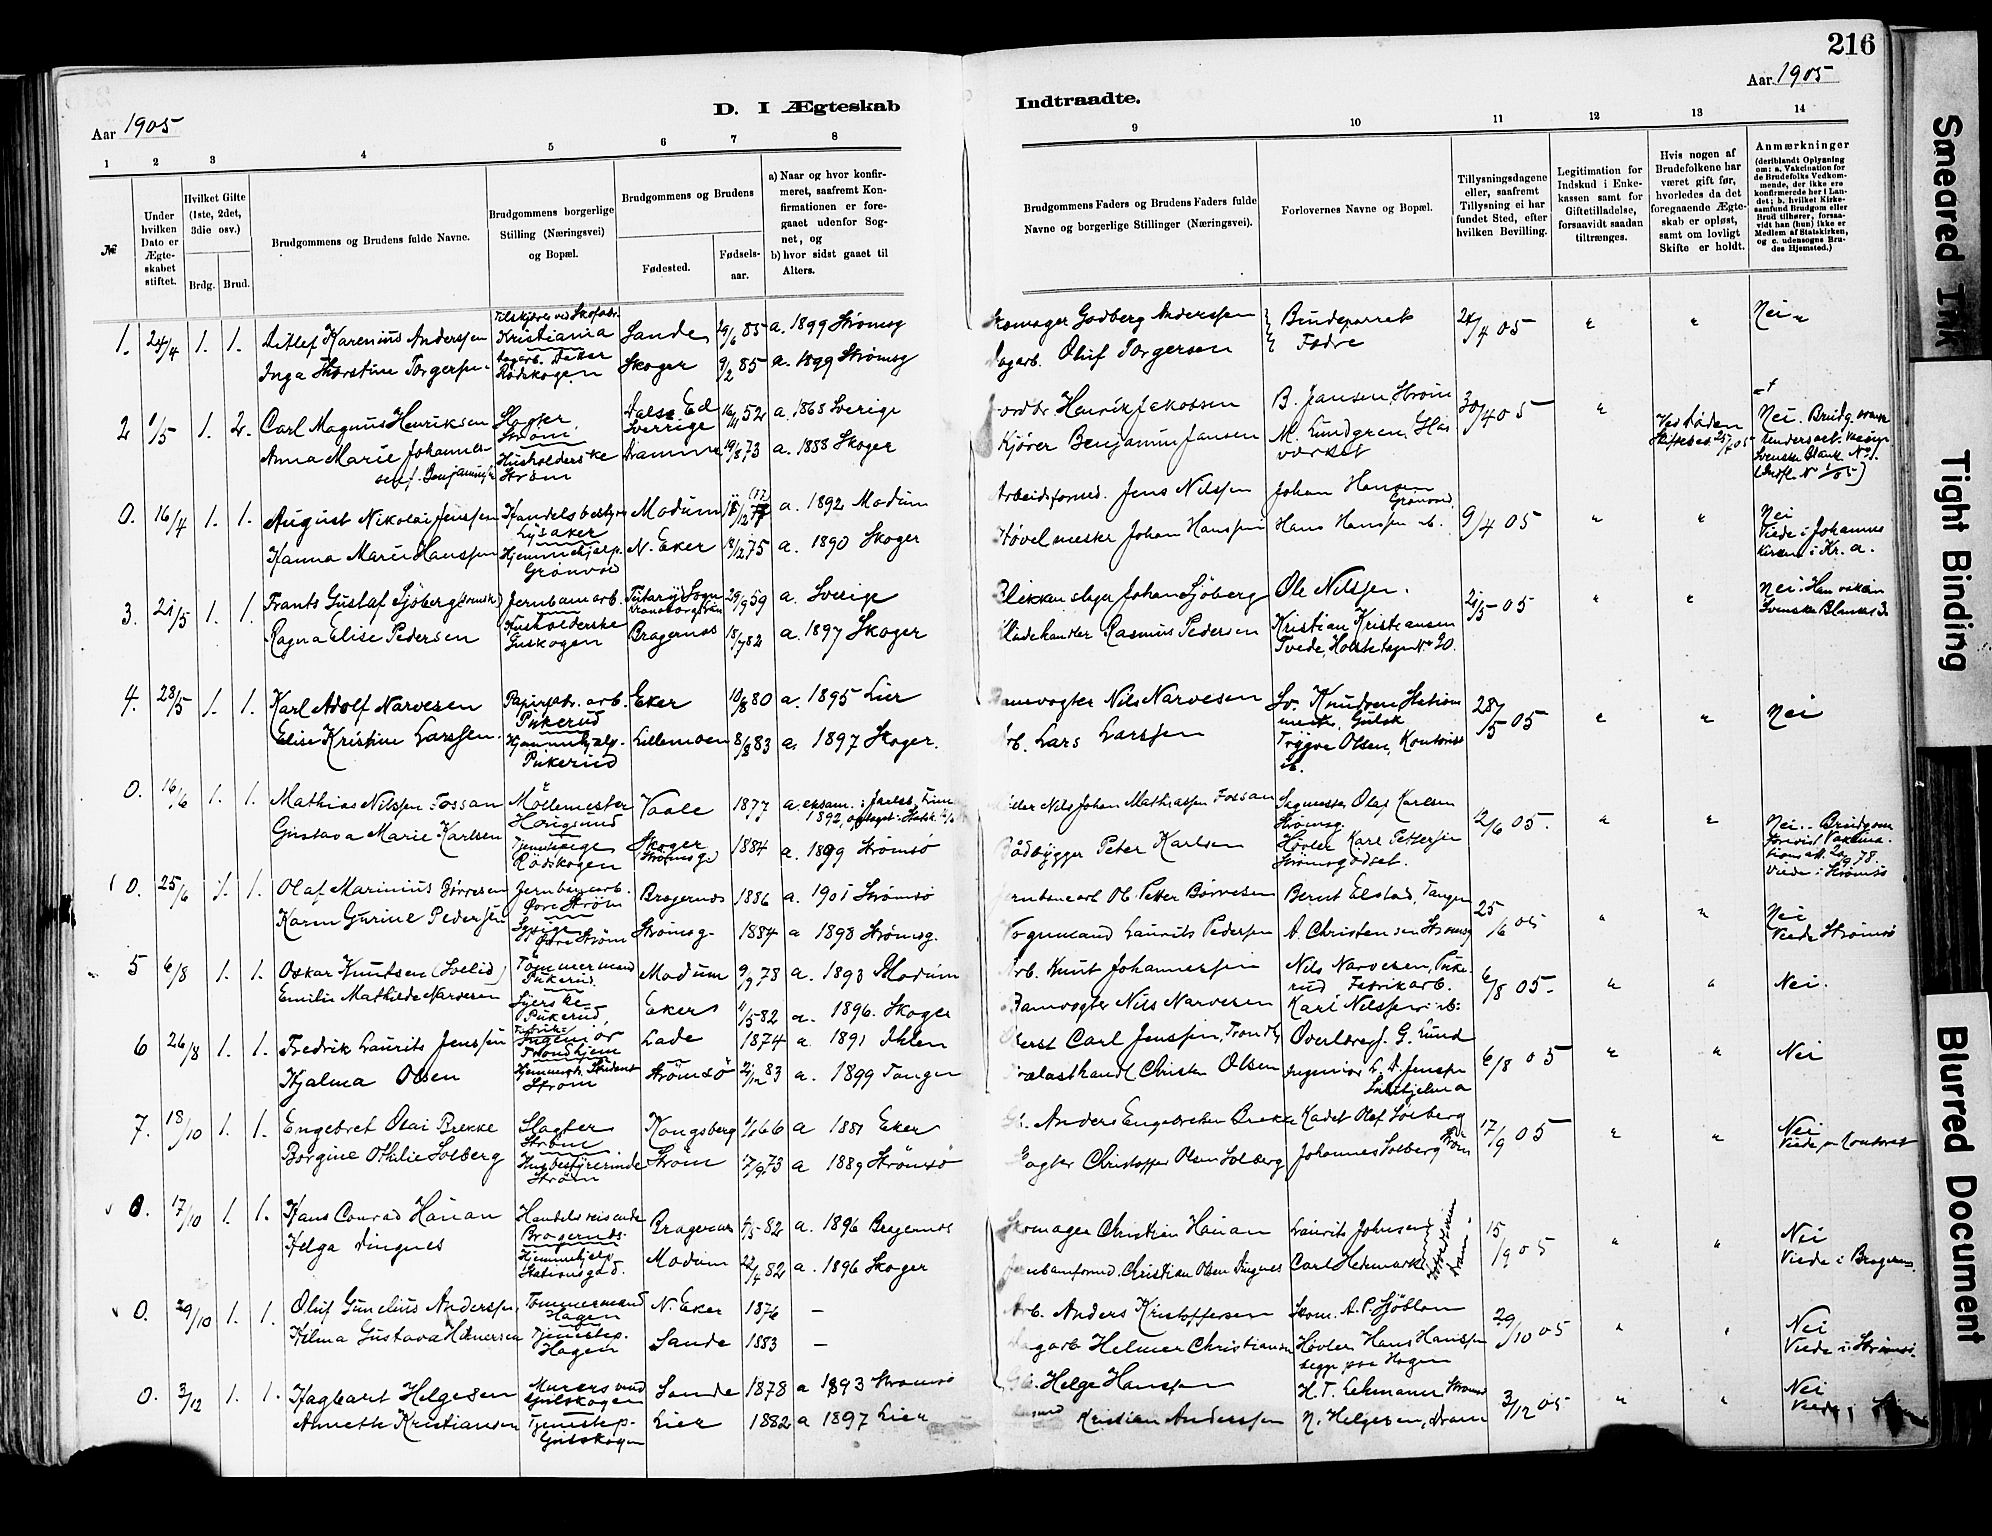 216
Aar 1905
D. I Ægteskab
Indtraadte.
Aar 1905
1 2 3 4 5 6 7 8
9 10 11 12 13 14
№
Under hvilken Dato er Ægteskabet stiftet.
Hvilket Gifte (1ste, 2det, 3die osv.)
Brdg. Brud.
Brudgommens og Brudens fulde Navne.
Brudgommens borgerlige Stilling (Næringsvei) og Bopæl.
Brudgommens og Brudens
Fødested.
Fødselsaar.
a) Naar og hvor konfirmeret, saafremt Konfirmationen er foregaaet udenfor Sognet, og
b) hvor sidst gaaet til Alters.
Brudgommens Faders og Brudens Faders fulde Navne og borgerlige Stillinger (Næringsvei).
Forlovernes Navne og Bopæl.
Tillysningsdagene eller, saafremt Tillysning ei har fundet Sted, efter hvilken Bevilling.
Legitimation for Indskud i Enkekassen samt for Giftetilladelse, forsaavidt saadan tiltrænges.
Hvis nogen af Brudefolkene har været gift før, hvorledes da det foregaaende Ægteskab er opløst, samt om lovligt Skifte er holdt.
Anmærkninger
(deriblandt Oplysning om: a. Vakcination for de Brudefolks Vedkommende, der ikke ere konfirmerede her i Landet; b. hvilket Kirkesamfund Brudgom eller Brud tilhører, forsaavidt han (hun) ikke er Medlem af Statskirken, og c. udensogns Brudes Hjemsted.)
1. 24/4 1. 1. Ditlef Karenius Anderssen Kristiania Sande 29/6 85 a. 1899 Strømsg Skomager Godberg Anderssen Brudeparrets 24/4 05 " " Nei
Inga Thorstine Torgersen Rødskogen Skoger 9/2 85 a. 1899 Strømsg Dagarb. Oluf Torgersen Fædre
2 1/5 1. 2. Carl Magnus Henriksen Skoger Strøm Dals Ed Sverrige 52 a. 1868 Sverige Henrik Jakobsen B. Jansen, Strøm 30/4 05 " Ved Døden Nei. Brudg.
Anna Marie Johannesen f. Benjaminsen Husholderske Strøm Dramm 19/8 73 a. 1888 Skoger Kjører Benjamin Jansen M. Lundgren, Svenske Blank. No 1.
0. 16/4 1. 1. August Nikolai Jenssen Lysaker Modum a. 1892 Modum Arbeidsformd. Jens Nilssen Johan Hansen Grønvold 9/4 05 " " Nei
Hanna Marie Hanssen Hjemmehjælp. Grønvold N. Eker 18/12 75 a. 1890 Skoger Høvelmester Johan Hanssen Hans Hanssen ib. Viede i Johannes kirken i Kr.a.
3. 21/5 1. 1. Frants Gustaf Sjøberg (svensk) Jernbanearb. 29/9 59 a. Sverige Blikkenslager Johan Sjøberg Ole Nilssen. 21/5 05 " " Nei.
Ragna Elise Pedersen Husholderske Guskogen Bragernes 18/7 82 a. 1897 Skoger Rasmus Pedersen Kristian Kristiansen Tvede, No 20. Svenske Blanket 3.
4. 28/5 1. 1. Karl Adolf Narvesen Papirfabr. arb. Pukerud Eker 10/8 80 a. 1895 Lier Banevogter Nils Narvesen Sv. Knudsen Stationmester, Gulsk 28/5 05 " " Nei
Elise Kristine Larssen. Hjemmehjælp. Pukerud Lillemoen 8/8 83 a. 1897 Skoger. Arb. Lars Larssen Trygve Olsen, Kontorist ib.
0. 16/6 1. 1. Mathias Nilssen Fossan Møllemester Vaale 1877 a. eksam. Nils Johan Mathiassen Fossan Sagmester Olaf Karlsen Strømsg. 12/6 05. " " Nei.. Brudgom
Gustava Marie Karlsen Tjenestepige Rødskogen Skoger Strømsg. 1884 a. 1899 Strømsø Baadbygger Peter Karlsen Høvler Karl Pettersen Strømsgodset. Viede i Strømsø
0. 25/6 1. 1. Olaf Marinius Børresen Jernbanearb. Øvre Strøm Bragernes 1886 a. 1901 Strømsø Jernbanearb Ol. Petter Børresen Bernt Elstad, Tangen 25/6 05 " " Nei
Karen Gurine Pedersen Sypige Øvre Strøm Strømsg. 1884 a 1898 Strømsg. Vognmand Laurits Pedersen A. Christensen Strømsg Viede Strømsø
5 6/8 1. 1. Oskar Knutsen (Svelid) Tømmermand Pukerud Modum 9/9 78 a. 1893 Modum Arb. Knut Johannessen Nils Narvesen, Pukerud Fabrikarb. 6/8 05. " " Nei.
Emilie Mathilde Narvesen Syerske Pukerud, Eker 11/5 82 a. 1896. Skoger Banevogter Nils Narvesen Karl Nilssen ib.
6 26/8 1. 1. Fredrik Laurits Jenssen Ingeniør Trondhjem Lade 1874 a. 1891 Ihlen Carl Jenssen, Trondh. Overlærer J. G. Lund 6/8 05 " " Nei
Hjalma Olsen Student Strøm Strømsø 21/12 83 a. 1899 Tangen Trælasthandl Christen Olsen Ingeniør L. D. Jenssen Sulitjelma
7. 18/10 1. 1. Engebret Olai Brekke Slagter Strøm Kongsberg 1/6 66 a 1881 Eker Anders Engebretsen Brekke Kadet Olaf Solberg 17/9 05 " " Nei
Borgine Othilie Solberg Husbestyrerinde Strøm Strøm 17/9 73 a 1889 Strømsø Christoffer Olsen Solberg Johannes Solberg Strøm Viede paa Kontoret
0. 17/10 1. 1. Hans Conrad Hanan Handelsreisende Bragernes Bragernes 4/5 82 a. 1896 Bragernes Skomager Christian Hanan Laurits Johnsen 15/9 05 " " Nei
Helga Dingnes Hjemmehjælp Stationsgad. Modum 22/4 82 a. 1896 Skoger Jernbanformd. Christian Olsen Dingnes Carl Hedemark Viede i Bragernes.
0. 29/10 1. 1. Oluf Gunelius Anderssen, Tømmermand Hagen N. Eker 1876 — Arb. Anders Kristoffersen Skom. A. P. Sjøblom 29/10 05 " " Nei
Hilma Gustava Helmersen Tjenestep. Hagen Sande 1883 — Dagarb Helmer Christiansen Høvler Hans Hanssen begge paa Hagen Viede i Strømsø.
0. 3/12 1. 1. Hagbart Helgesen Murersvend Gulskogen Sande 1878 a 1893 Strømsø Helge Hanssen H. T. Lehmann Strømsø 3/12 05 " " Nei
Annette Kristiansen Tjenestep. Gulskogen Lier 1882 a 1897 Lier Kristian Anderssen N. Helgesen, Dram Viede i
Smeared Ink
Tight Binding
Blurred Document